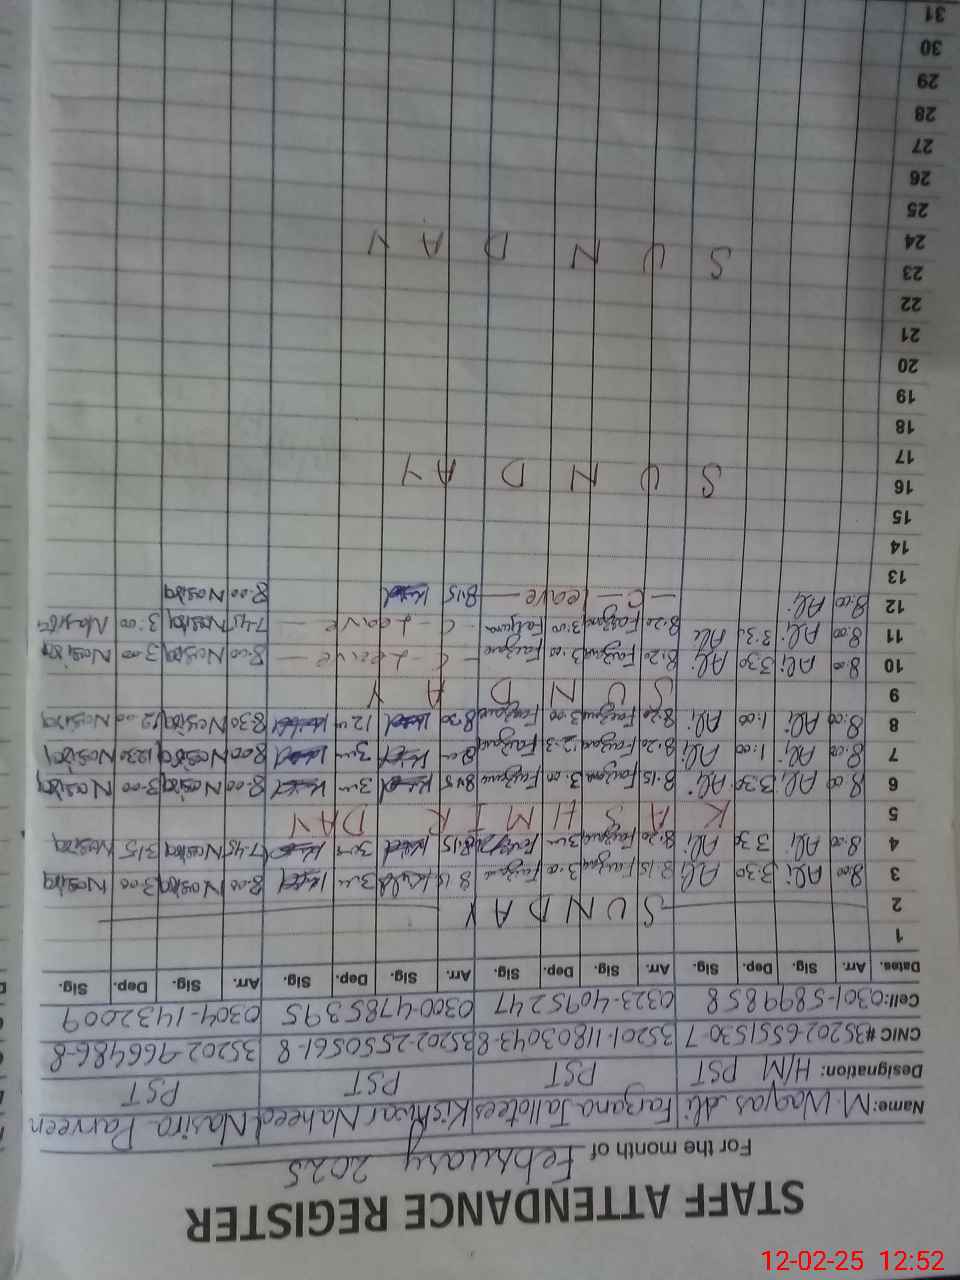 STAFF ATTENDANCE REGISTER
For the month of February 2025
Name: M. Waqas Ali Farzana Jallotee Kishwar Naheed Nasira Parveen
Designation: H/M PST PST PST PST
CNIC # 35202-6551530-7 35201-11803043-8 35202-2550561-8 35202-966486-8
Cell: 0301-5899858 0323-4095247 0300-4785395 0304-1432009
Dates. Arr. Sig. Dep. Sig. Arr. Sig. Dep. Sig. Arr. Sig. Dep. Sig. Arr. Sig. Dep. Sig.
1
2 SUNDAY
3 8:00 Ali 3:30 Ali 8:15 Farzana 3:00 Farzana 8:15 3:00 8:00 Nasira 3:00 Nasira
4 8:00 Ali 3:30 Ali 8:20 Farzana 3:00 8:15 3:00 7:45 Nasira 3:15 Nasira
5 KASHMIR DAY
6 8:00 Ali 3:30 Ali 8:15 Farzana 3:00 Farzana 8:15 3:00 8:00 Nasira 3:00 Nasira
7 8:00 Ali 1:00 Ali 8:20 Farzana Farzana 3:00 8:00 Nasira 12:30 Nasira
8 8:00 Ali 1:00 Ali 8:20 Farzana 3:00 Farzana 8:20 8:30 Nasira 12:00 Nasira
9 SUNDAY
10 8:00 Ali 3:30 Ali 8:20 Farzana 3:00 Farzana - C - Leave - 8:00 Nasira 3:00 Nasira
11 8:00 Ali 3:3 Ali 8:20 Farzana 3:00 Farzana - C - Leave - 7:45 Nasira 3:00 Nasira
12 8:00 Ali - C - Leave - 8:15 8:00 Nasira
13
14
15
16 SUNDAY
17
18
19
20
21
22
23 SUNDAY
24
25
26
27
28
29
30
31
12-02-25 12:52